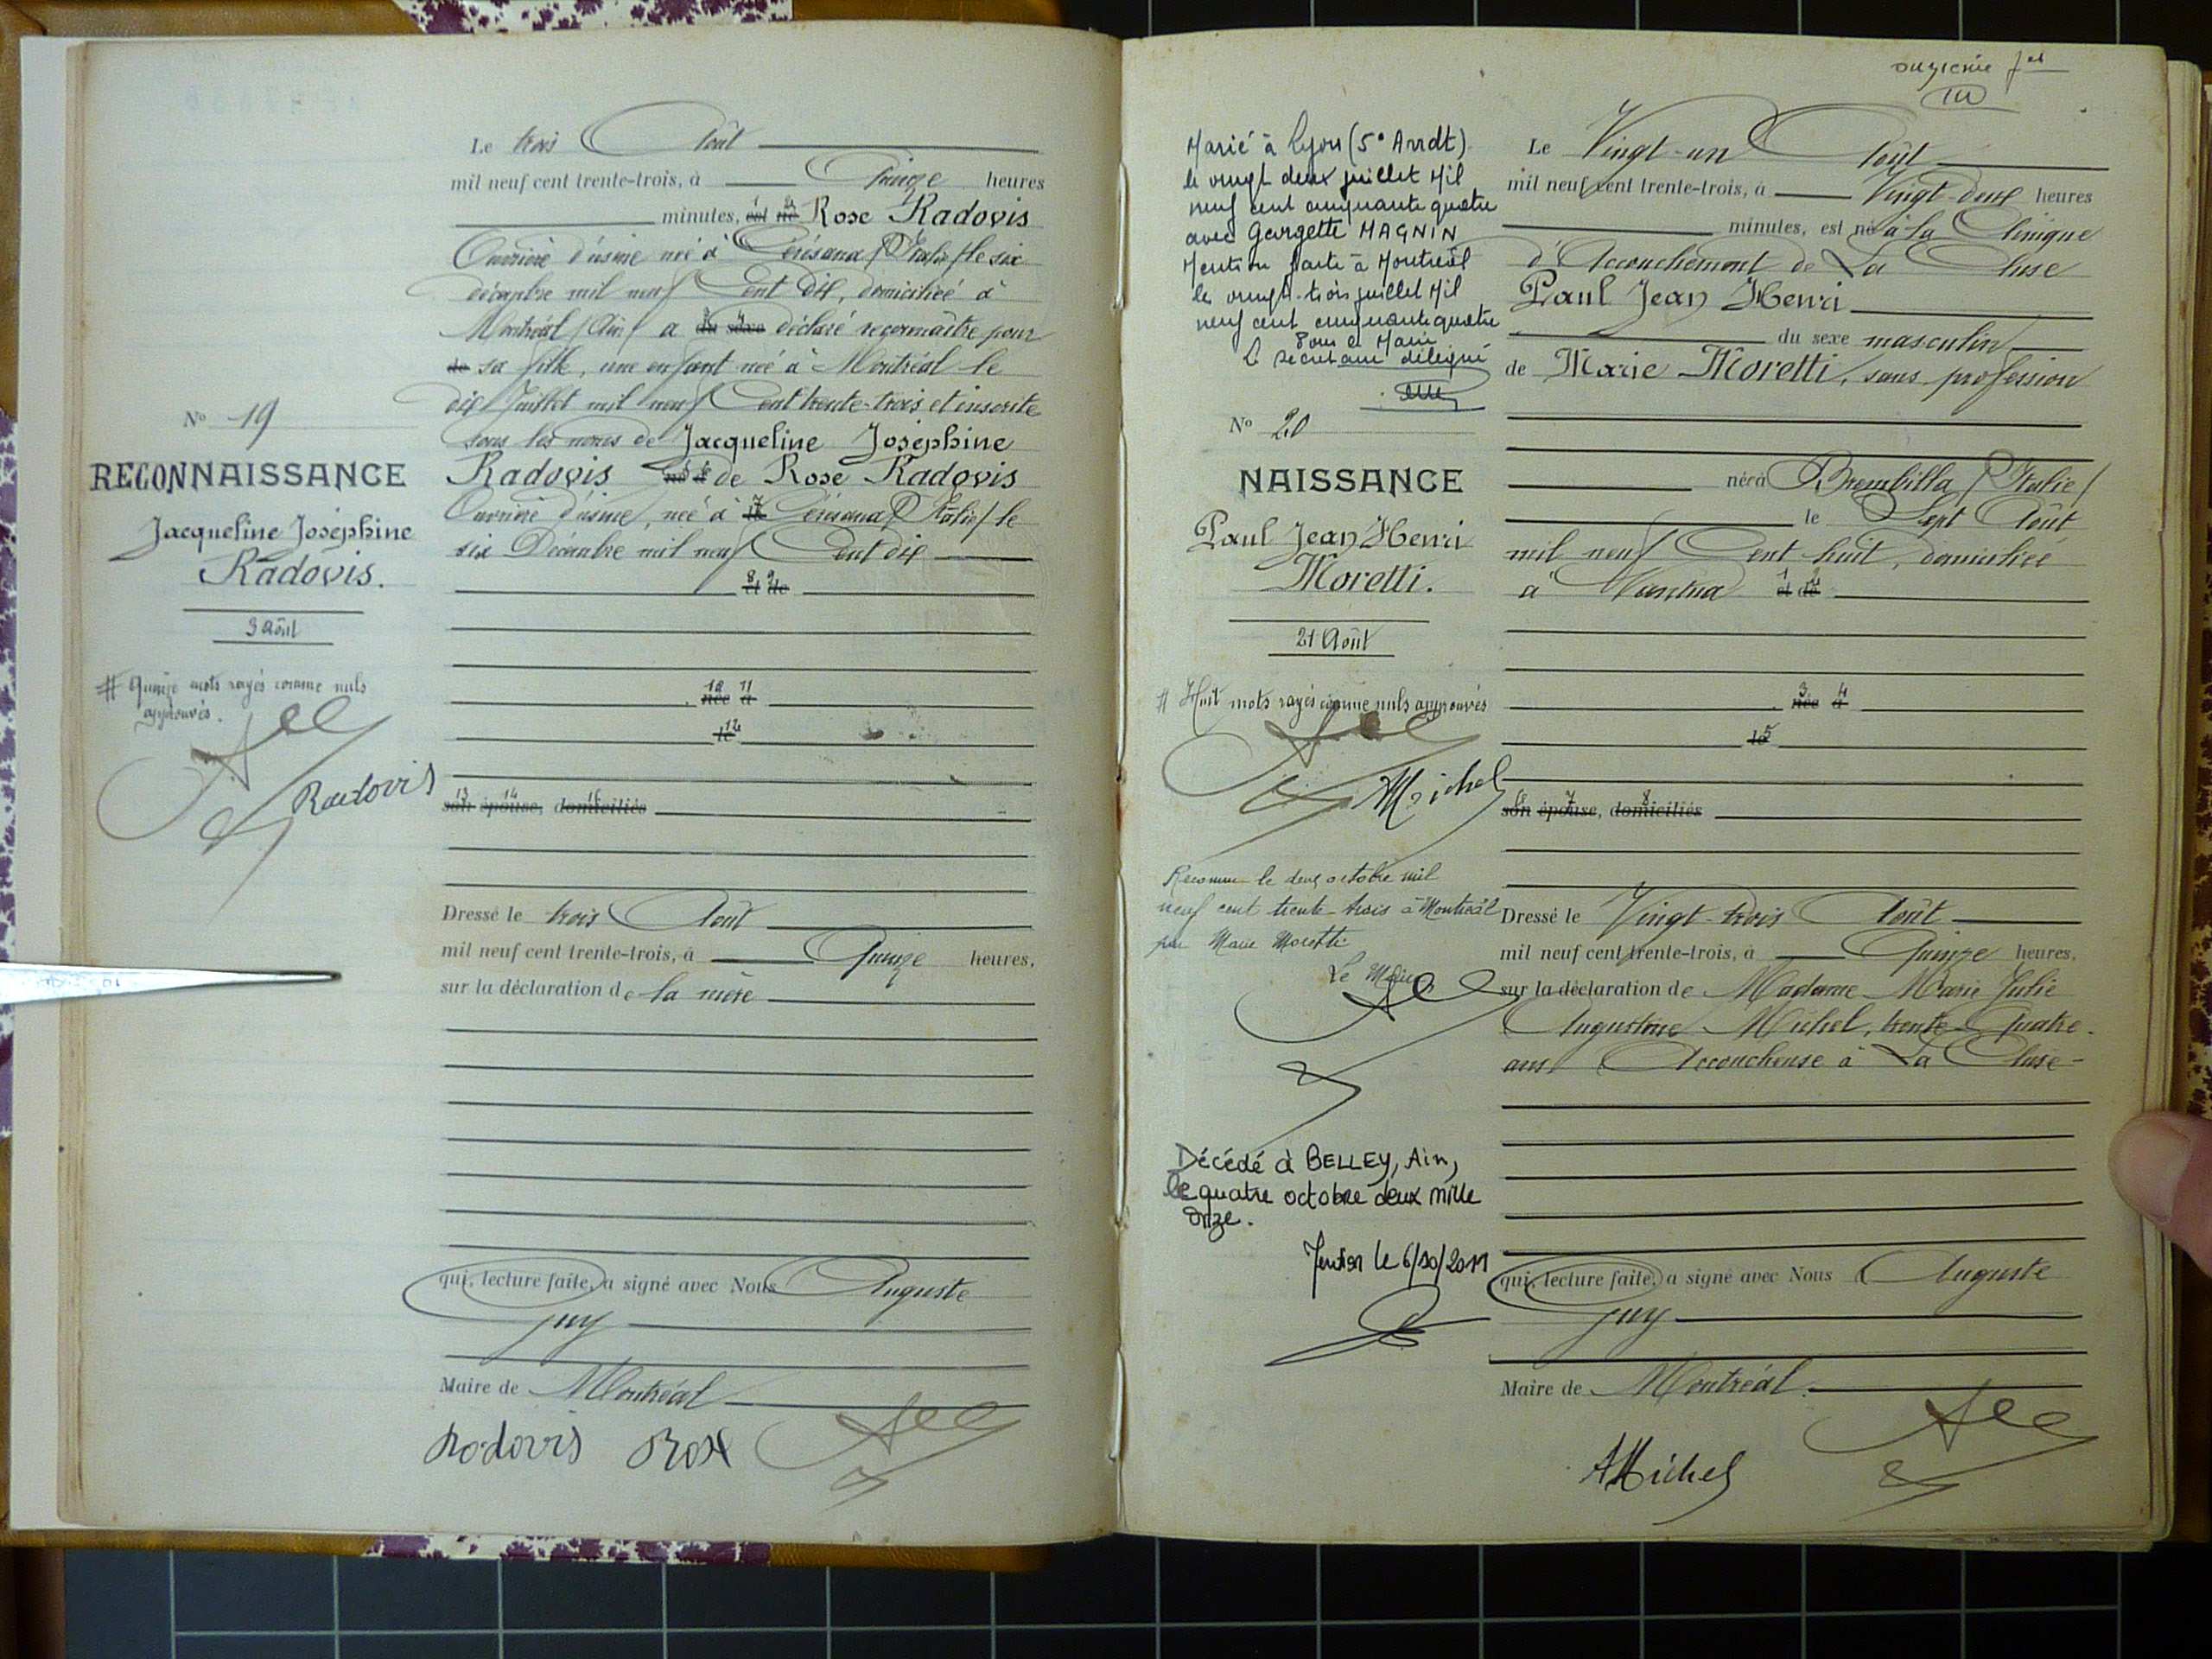 Le trois Août
mil neuf cent trente-trois, à Quinze heures
minutes, est né Rose Radovis
Ouvrière d'usine née à Cérésana (Italie) le six
décembre mil neuf Cent Dix, domiciliée à
Montréal (Ain) a du sexe déclaré reconnaître pour
de sa fille, une enfant née à Montréal le
dix Juillet mil neuf Cent trente-trois et inscrite
sous les noms de Jacqueline Joséphine
Radovis né à de Rose Radovis
Ouvrière d'usine, née à le Cérésana (Italie) le
six Décembre mil neuf Cent dix
et de
née à
le
son épouse, domiciliés
Dressé le trois Août
mil neuf cent trente-trois, à Quinze heures,
sur la déclaration de la mère
qui, lecture faite, a signé avec Nous Auguste
Guy
Maire de Montréal
Radovis Rose
No 19
RECONNAISSANCE
Jacqueline Joséphine
Radovis.
3 Août
# Quinze mots rayés comme nuls
approuvés.
Radovis
onzième
Marié à Lyon (5° Arrdt)
le vingt deux juillet Mil
neuf cent cinquante quatre
avec Georgette MAGNIN
Mention faite à Montréal
le vingt-trois juillet Mil
neuf cent cinquante quatre
Pour le Maire
Le Secrétaire délégué
No 20
NAISSANCE
Paul Jean Henri
Moretti.
21 Août
# Huit mots rayés comme nuls approuvés
AMichel
Reconnu le deux octobre mil
neuf cent trente-trois à Montréal
par Marie Moretti
Le Maire
Décédé à BELLEY, Ain,
le quatre octobre deux mille
onze.
Mention le 6/10/2011
Le Vingt-un Août
mil neuf cent trente-trois, à Vingt-deux heures
minutes, est né à la Clinique
d'Accouchement de La Cluse
Paul Jean Henri
du sexe masculin
de Marie Moretti, sans profession
née à Brembilla (Italie)
le Sept Août
mil neuf Cent huit, domiciliée
à Nantua et de
née à
le
son épouse, domiciliés
Dressé le Vingt-trois Août
mil neuf cent trente-trois, à Quinze heures,
sur la déclaration de Madame Marie Julie
Augustine Michel, trente-Quatre
ans Accoucheuse à La Cluse
qui, lecture faite, a signé avec Nous Auguste
Guy
Maire de Montréal.
AMichel